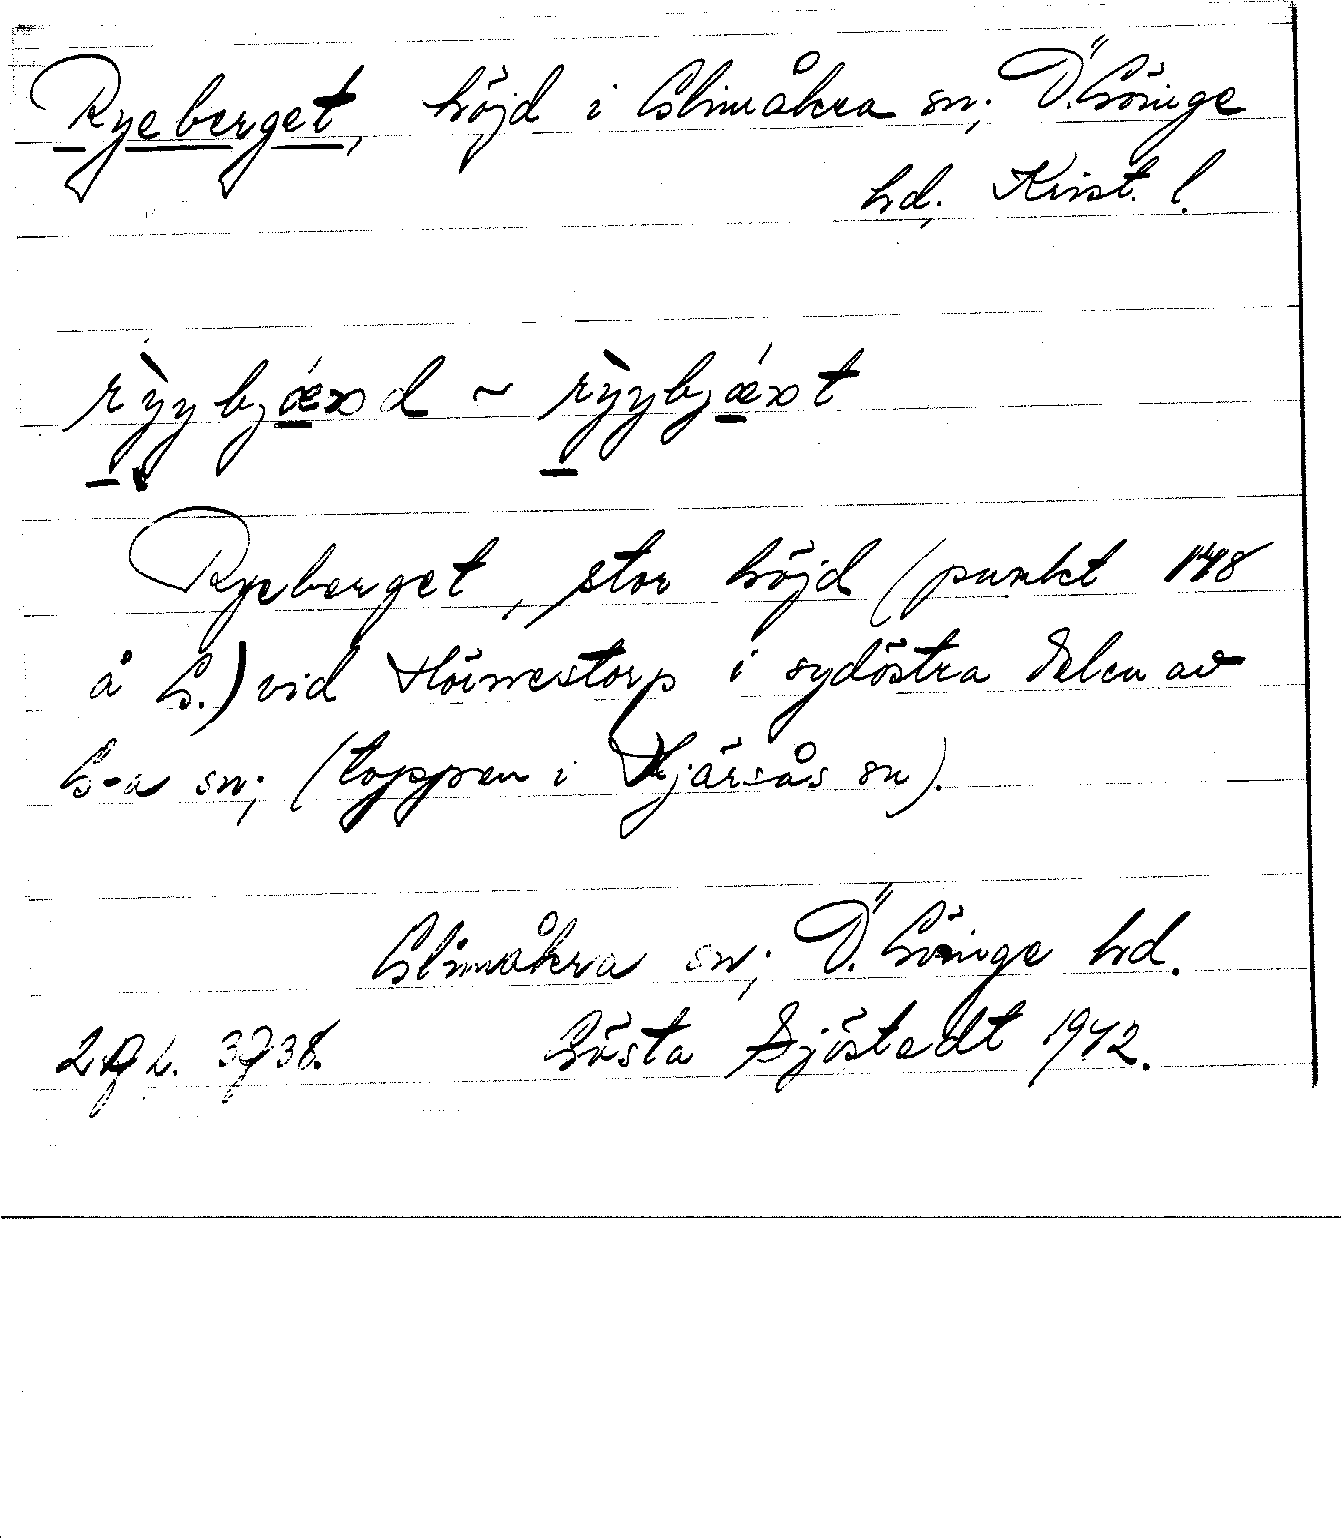 Ryeberget, höjd i Glimåkra sn; Ö. Göinge
hd; Krist. l.
rỳybjǽxd ~ rỳybjǽxt
Ryeberget, stor höjd (punkt 148
å G.) vid Hörnestorp i sydöstra delen av
G-a sn; (toppen i Hjärsås sn).
Glimåkra sn; Ö. Göinge hd.
Gösta Sjöstedt 1942.